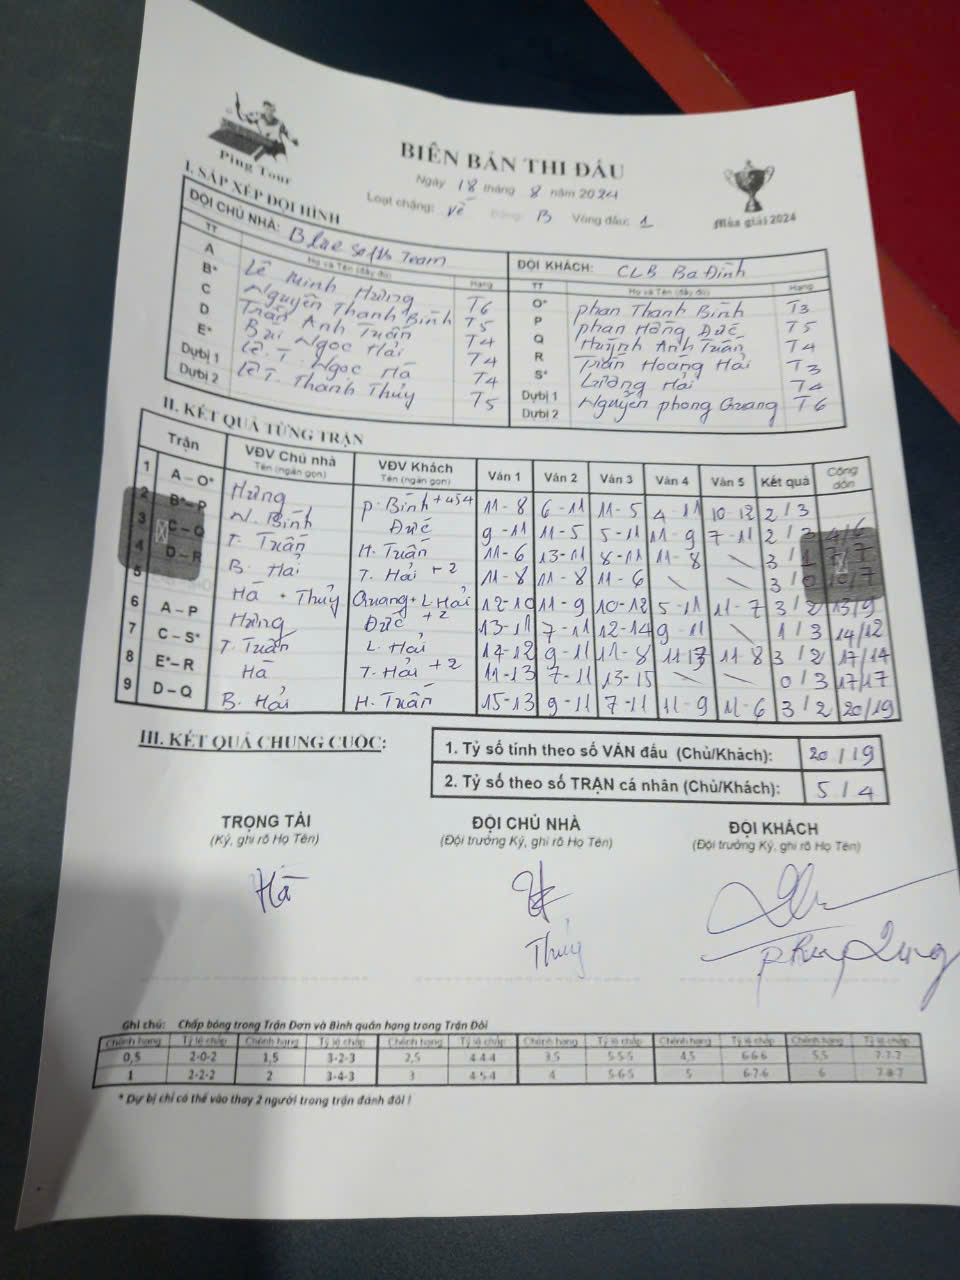 Ping Tour
BIÊN BẢN THI ĐẤU
Ngày 18 tháng 8 năm 2024
Loạt chặng: Về Bảng: B Vòng đấu: 1
Mùa giải 2024
I. SẮP XẾP ĐỘI HÌNH
ĐỘI CHỦ NHÀ: Team
TT Họ và Tên (đầy đủ) Hạng
A Lê Minh Hưng T6
B* Nguyễn Thanh Bình T5
C Trần Anh Tuấn T4
D Bùi Ngọc Hải T4
E* Lê. T. Ngọc Hà T4
Dựbị 1 Lê T. Thanh Thủy T5
Dựbị 2
ĐỘI KHÁCH: CLB Ba Đình
TT Họ và Tên (đầy đủ) Hạng
O* phan Thanh Bình T3
P phan Hồng Đức T5
Q Huỳnh Anh Tuấn T4
R Trần Hoàng Hải T3
S* Lương Hải T4
Dựbị 1 Nguyễn phong Quang T6
Dựbị 2
II. KẾT QUẢ TỪNG TRẬN
Trận VĐV Chủ nhà VĐV Khách Ván 1 Ván 2 Ván 3 Ván 4 Ván 5 Kết quả Cộng dồn
Tên (ngắn gọn) Tên (ngắn gọn)
1 A – O* Hưng P. Bình +454 11-8 6-11 11-5 4-11 10-12 2/3
2 B*–P N. Bình Đức 9-11 11-5 5-11 11-9 7-11 2/3 4/6
3 C–Q T. Tuấn H. Tuấn 11-6 13-11 8-11 11-8 \ 3/1 7/7
4 D–R B. Hải T. Hải +2 11-8 11-8 11-6 \ \ 3/0 10/7
5 Hà + Thủy Quang+L.Hải +2 12-10 11-9 10-12 5-11 11-7 3/2 13/9
6 A – P Hưng Đức 13-11 7-11 12-14 9-11 \ 1/3 14/12
7 C – S* T. Tuấn L. Hải 14-12 9-11 11-8 11 13 11 8 3/2 17/14
8 E*– R Hà T. Hải +2 11-13 7-11 13-15 \ \ 0/3 17/17
9 D – Q B. Hải H. Tuấn 15-13 9-11 7-11 11-9 11-6 3/2 20/19
III. KẾT QUẢ CHUNG CUỘC:
1. Tỷ số tính theo số VÁN đấu (Chủ/Khách): 20/19
2. Tỷ số theo số TRẬN cá nhân (Chủ/Khách): 5/4
TRỌNG TÀI ĐỘI CHỦ NHÀ ĐỘI KHÁCH
(Ký, ghi rõ Họ Tên) (Đội trưởng Ký, ghi rõ Họ Tên) (Đội trưởng Ký, ghi rõ Họ Tên)
Hà
Thủy
Ghi chú: Chấp bóng trong Trận Đơn và Bình quân hạng trong Trận Đôi
Chênh hạng Tỷ lệ chấp Chênh hạng Tỷ lệ chấp Chênh hạng Tỷ lệ chấp Chênh hạng Tỷ lệ chấp Chênh hạng Tỷ lệ chấp Chênh hạng Tỷ lệ chấp
0,5 2-0-2 1,5 3-2-3 2,5 4-4-4 3,5 5-5-5 4,5 6-6-6 5,5 7-7-7
1 2-2-2 2 3-4-3 3 4-5-4 4 5-6-5 5 6-7-6 6 7-8-7
* Dự bị chỉ có thể vào thay 2 người trong trận đánh đôi !